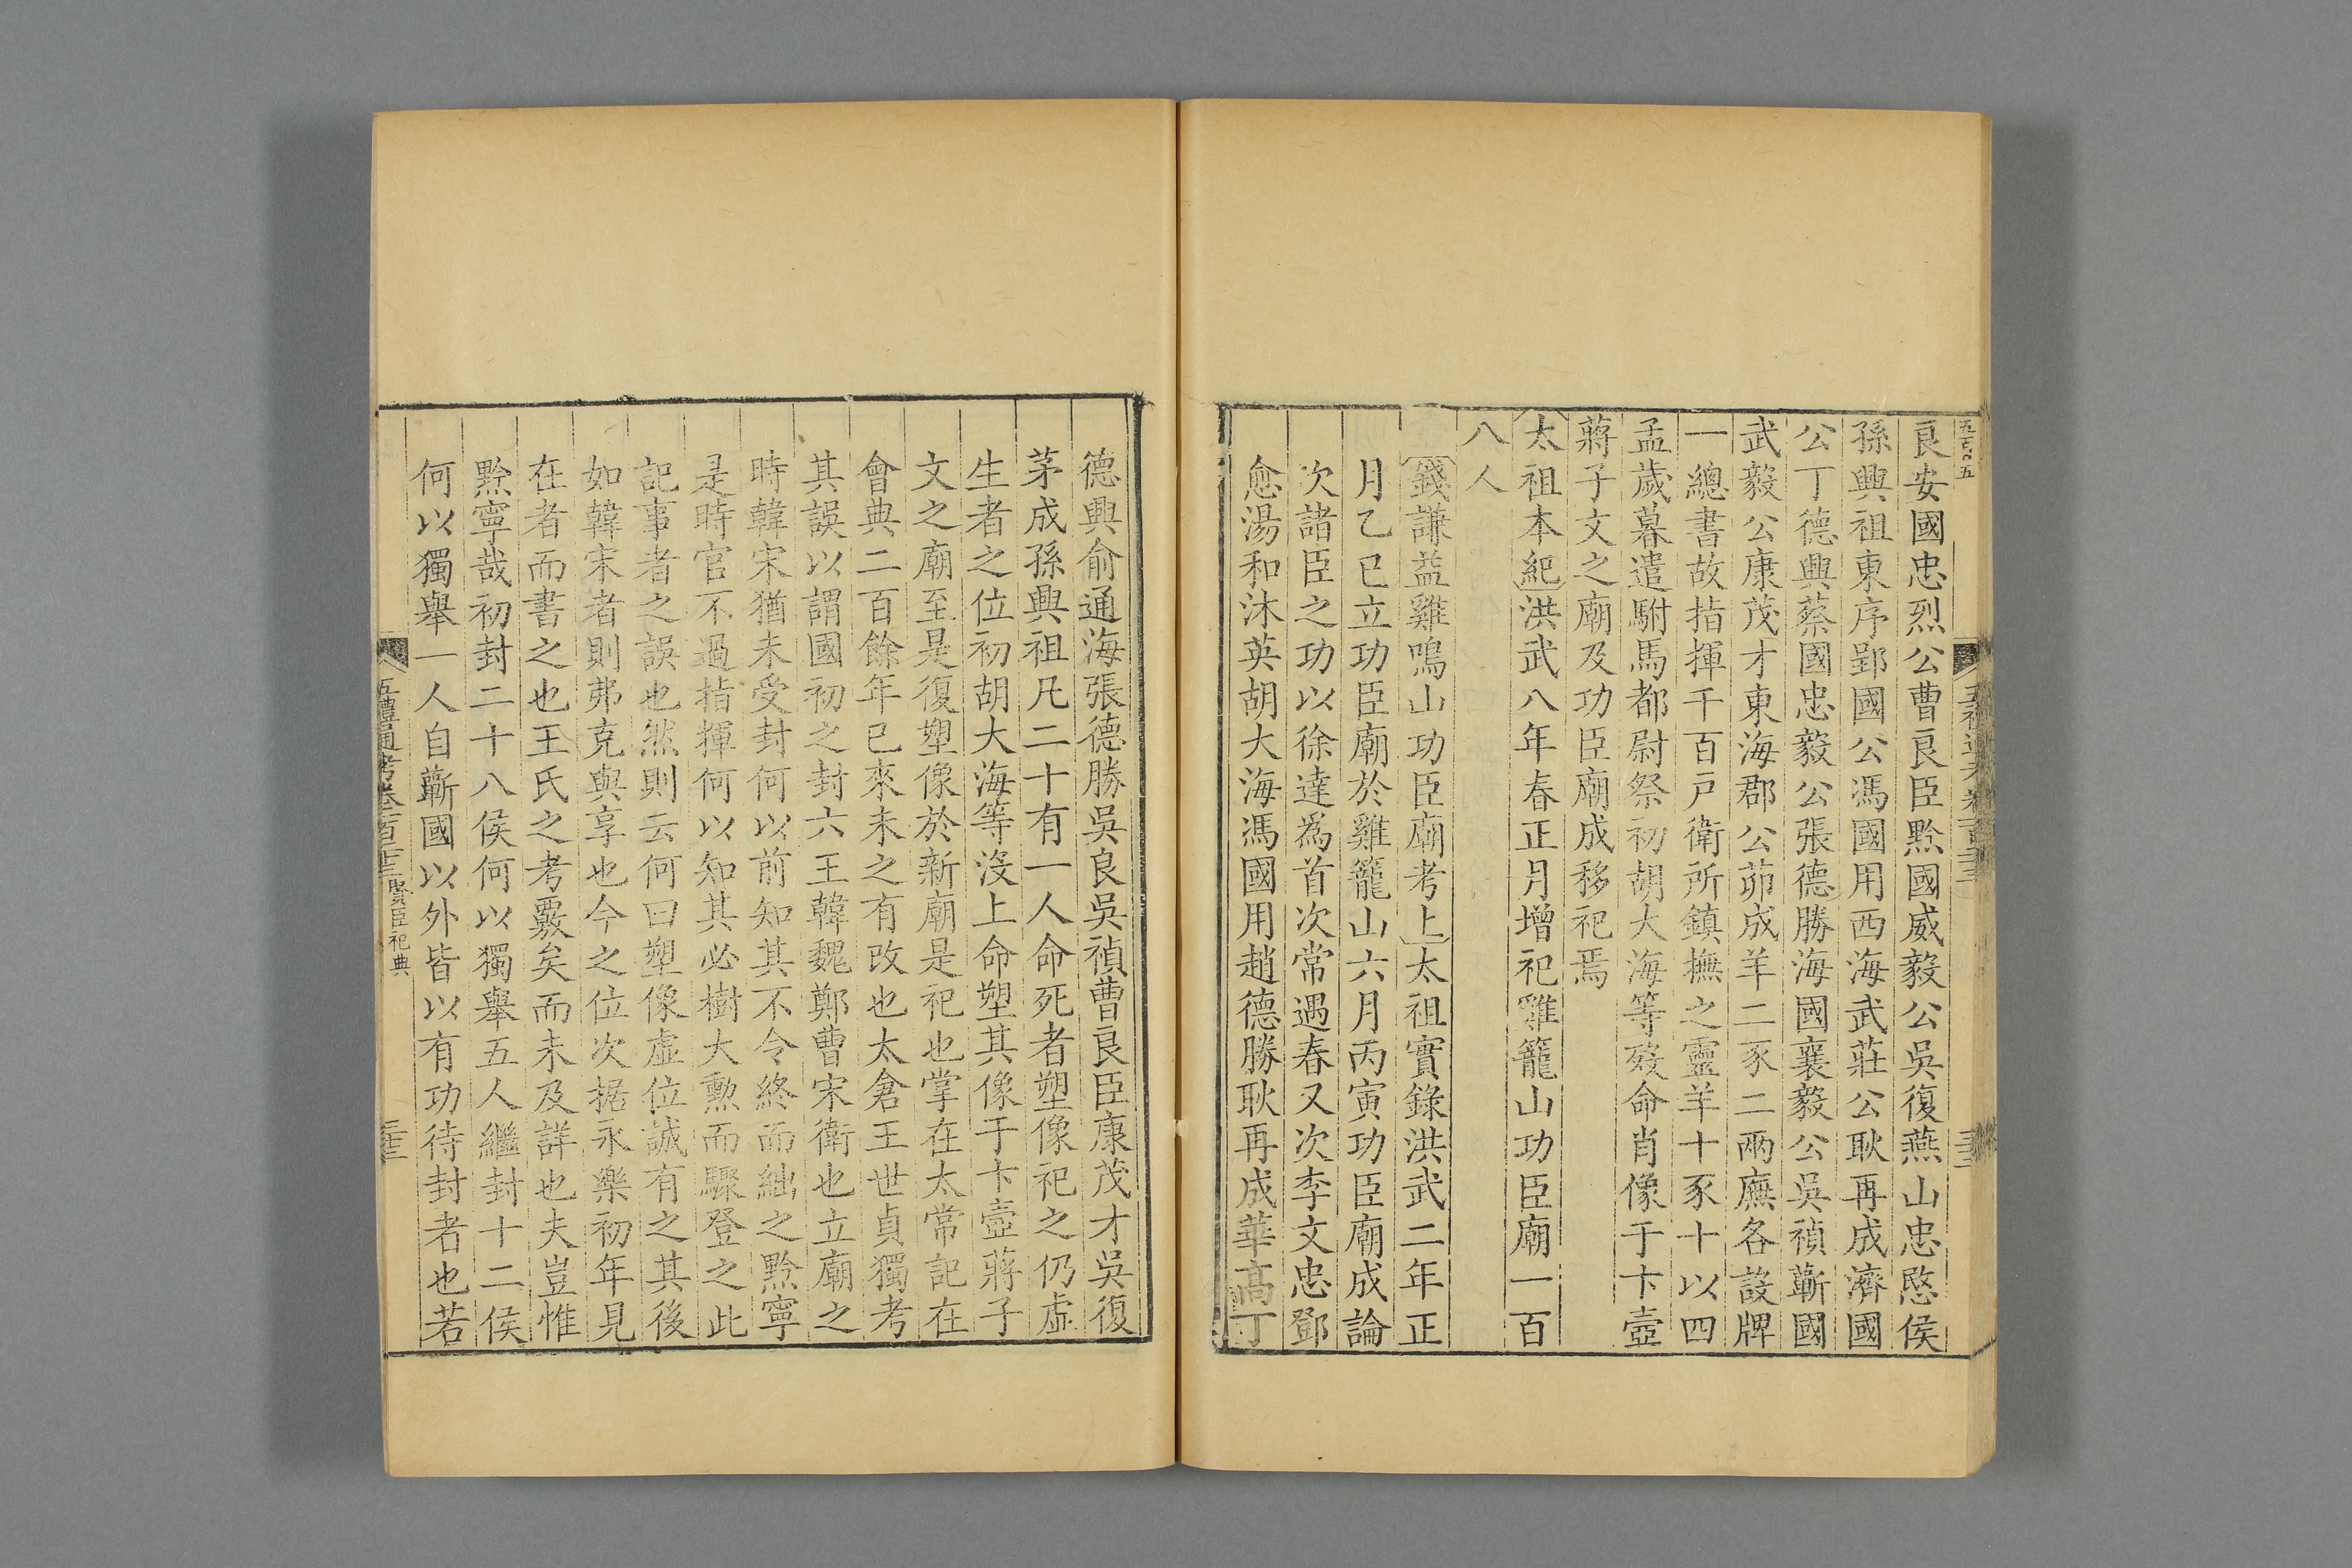 良安國忠烈公曹良臣黔國威毅公吳復燕山忠愍侯
孫興祖東序郢國公馮國用西海武莊公耿再成濟國
公丁德興蔡國忠毅公張德勝海國襄毅公吳禎蘄國
武毅公康茂才東海郡公茆成羊二豕二兩廡各設牌
一總書故指揮千百戸衛所鎮撫之靈羊十豕十以四
孟歲暮遣駙馬都尉祭初胡大海等殁命肖像于卞壺
蔣子文之廟及功臣廟成移祀焉
太祖本紀洪武八年春正月增祀雞籠山功臣廟一百
八人
錢謙益雞鳴山功臣廟考上太祖實錄洪武二年正
月乙巳立功臣廟於雞籠山六月丙寅功臣廟成論
次諸臣之功以徐達爲首次常遇春又次李文忠鄧
愈湯和沐英胡大海馮國用趙德勝耿再成華高丁
德興俞通海張德勝吳良吳禎曹良臣康茂才吳復
茅成孫興祖凡二十有一人命死者塑像祀之仍虛
生者之位初胡大海等沒上命塑其像于卞壼蔣子
文之廟至是復塑像於新廟是祀也掌在太常記在
會典二百餘年已來未之有改也太倉王世貞獨考
其誤以謂國初之封六王韓魏鄭曹宋衛也立廟之
時韓宋猶未受封何以前知其不令終而絀之黔寧
是時官不過指揮何以知其必樹大勲而驟登之此
記事者之誤也然則云何曰塑像虛位誠有之其後
如韓宋者則弗克與享也今之位次據永樂初年見
在者而書之也王氏之考覈矣而未及詳也夫豈惟
黔寧哉初封二十八侯何以獨舉五人繼封十二侯
何以獨舉一人自蘄國以外皆以有功待封者也若
五禮通考卷一百二十三 賢臣祀典